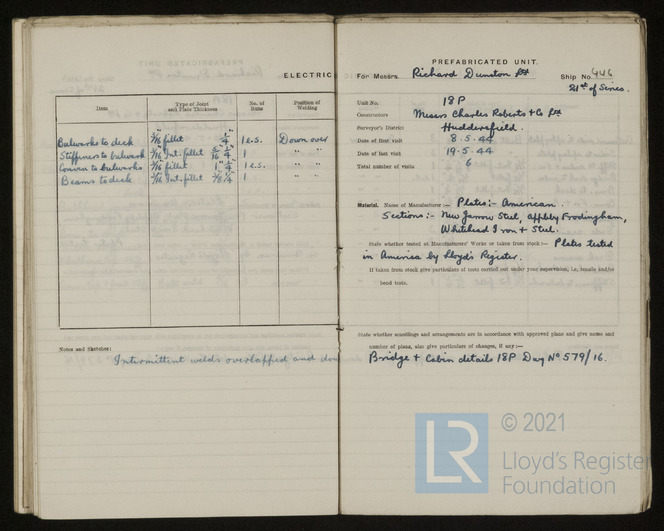 ELECTRIC
Item
Type of Joint and Plate Thickness
No. of Items
Position of Welding
Bulworks to deck 3/16" fillet 1/4" 1 e.s. Down over
Stiffeners to bulwork 3/16 Int. fillet 5/16 1/4" 1 " "
Coven to bulworks 3/16 fillet 1" 1/4" 1 e.s. " "
Beams to deck 3/16 Int. fillet 1/4 1 " "
Notes and Sketches:
Intermittent welds overlapped and dou
PREFABRICATED UNIT.
For Messrs. Richard Dunston Ltd Ship No. 446
21st of Series.
Unit No. 18P
Constructors Messrs Charles Roberts & Co Ltd
Surveyor's District Huddersfield.
Date of first visit 8.5.44
Date of last visit 19.5.44
Total number of visits 6
Material. Name of Manufacturer :— Plates:- American.
Sections:- New Jarrow Steel, Appleby Frodingham,
Whitehead Iron & Steel.
State whether tested at Manufacturers' Works or taken from stock :— Plates tested
in America by Lloyd's Register.
If taken from stock give particulars of tests carried out under your supervision, i.e., tensile and/or
bend tests.
State whether scantlings and arrangements are in accordance with approved plans and give name and
number of plans, also give particulars of changes, if any :—
Bridge & Cabin details 18P Dwg No 579/16.
LR
© 2021
Lloyd's Register
Foundation